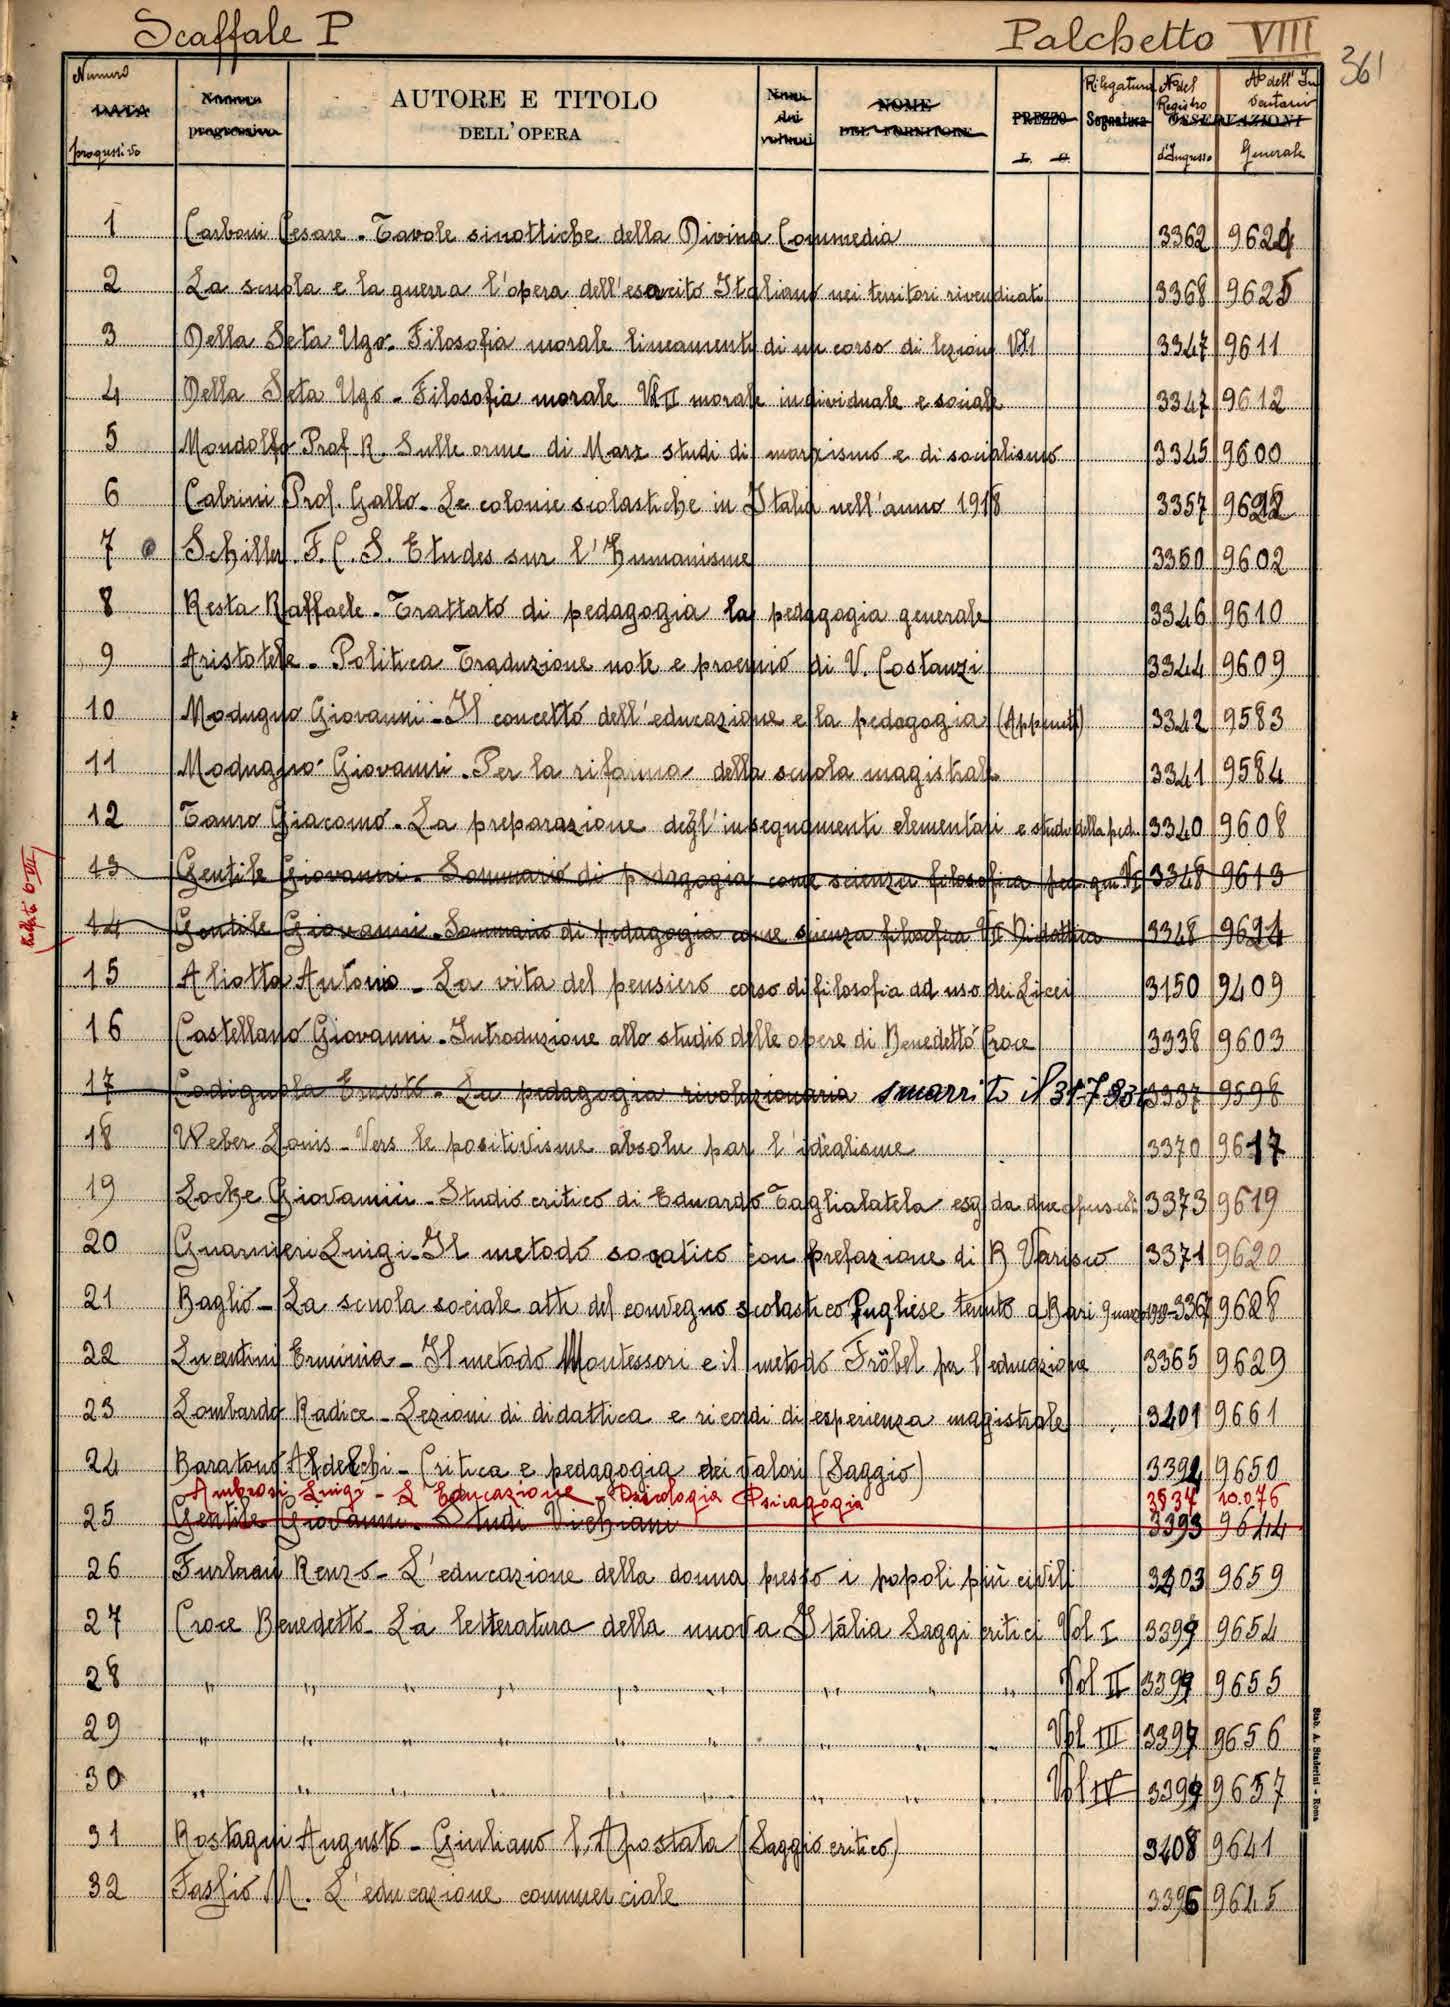 Scaffale P Palchetto VIII
361
Numero progressivo DATA Numero progressivo AUTORE E TITOLO DELL'OPERA Num. dei volumi NOME DEL FORNITORE PREZZO L. C. Rilegatura Segnatura N° del Registro d'Ingresso OSSERVAZIONI N° dell' Inventario Generale
1 Carboni Cesare - Tavole sinottiche della Divina Commedia 3362 9624
2 La scuola e la guerra l'opera dell'esercito Italiano nei territori rivendicati 3368 9625
3 Della Seta Ugo - Filosofia morale lineamenti di un corso di lezioni Vol I 3347 9611
4 Della Seta Ugo - Filosofia morale Vol II morale individuale e sociale 3347 9612
5 Mondolfo Prof R. Sulle orme di Marx studi di marxismo e di socialismo 3345 9600
6 Cabrini Prof. Gallo - Le colonie scolastiche in Italia nell'anno 1918 3357
7 Schiller. F. C. S. Etudes sur l'Humanisme 3350 9602
8 Resta Raffaele - Trattato di pedagogia la pedagogia generale 3346 9610
9 Aristotele - Politica Traduzione note e proemio di V. Costanzi 3344 9609
10 Modugno Giovanni - Il concetto dell'educazione e la pedagogia (Appunti) 3342 9583
11 Modugno Giovanni - Per la riforma della scuola magistrale 3341 9584
12 Tauro Giacomo - La preparazione degl'insegnamenti elementari e studi della ped. 3340 9608
13 Gentile Giovanni - Sommario di pedagogia come scienza filosofica ped. gen V I 3348 9613
14 Gentile Giovanni - Sommario di pedagogia come scienza filosofica V II Didattica 3348 9614
15 Aliotta Antonio - La vita del pensiero corso di filosofia ad uso dei Licei 3150 9409
16 Castellano Giovanni - Introduzione allo studio delle opere di Benedetto Croce 3338 9603
17 Codignola Ernesto - La pedagogia rivoluzionaria smarrito il 31-7-93 3337 9598
18 Weber Louis - Vers le positivisme absolu par l'idéalisme 3370 9617
19 Locke Giovanni - Studio critico di Eduardo Taglialatela esg da due opuscoli 3373 9619
20 Guarnieri Luigi - Il metodo socratico con prefazione di B Varisco 3371 9620
21 Baglio - La scuola sociale atti del convegno scolastico Pugliese tenuto a Bari 9 marzo 1919 - 3367 9628
22 Lucentini Erminia - Il metodo Montessori e il metodo Fröbel per l'educazione 3365 9629
23 Lombardo Radice - Lezioni di didattica e ricordi di esperienza magistrale 3401 9661
24 Baratono Adelchi - Critica e pedagogia dei valori (Saggio) 3394 9650
Ambrosi Luigi - L'Educazione - Psicologia Psicagogia 3834 10.076
25 Gentile Giovanni - Studi Vichiani 3393 9644
26 Furlani Renzo - L'educazione della donna presso i popoli più civili 3403 9659
27 Croce Benedetto - La letteratura della nuova Italia Saggi critici Vol I 3399 9654
28 " " " " " " " " " Vol II 3399 9655
29 " " " " " " " " " Vol III 3399 9656
30 " " " " " " " " " Vol IV 3399 9657
31 Rostagni Augusto - Giuliano l'Apostata (Saggio critico) 3408 9641
32 Fasfió M. L'educazione commerciale 3396 9645
Stab. A. Staderini - Roma